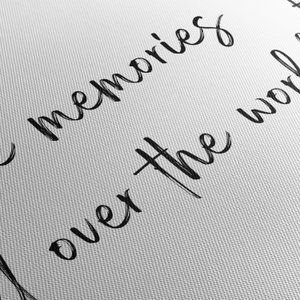 memories
over the world